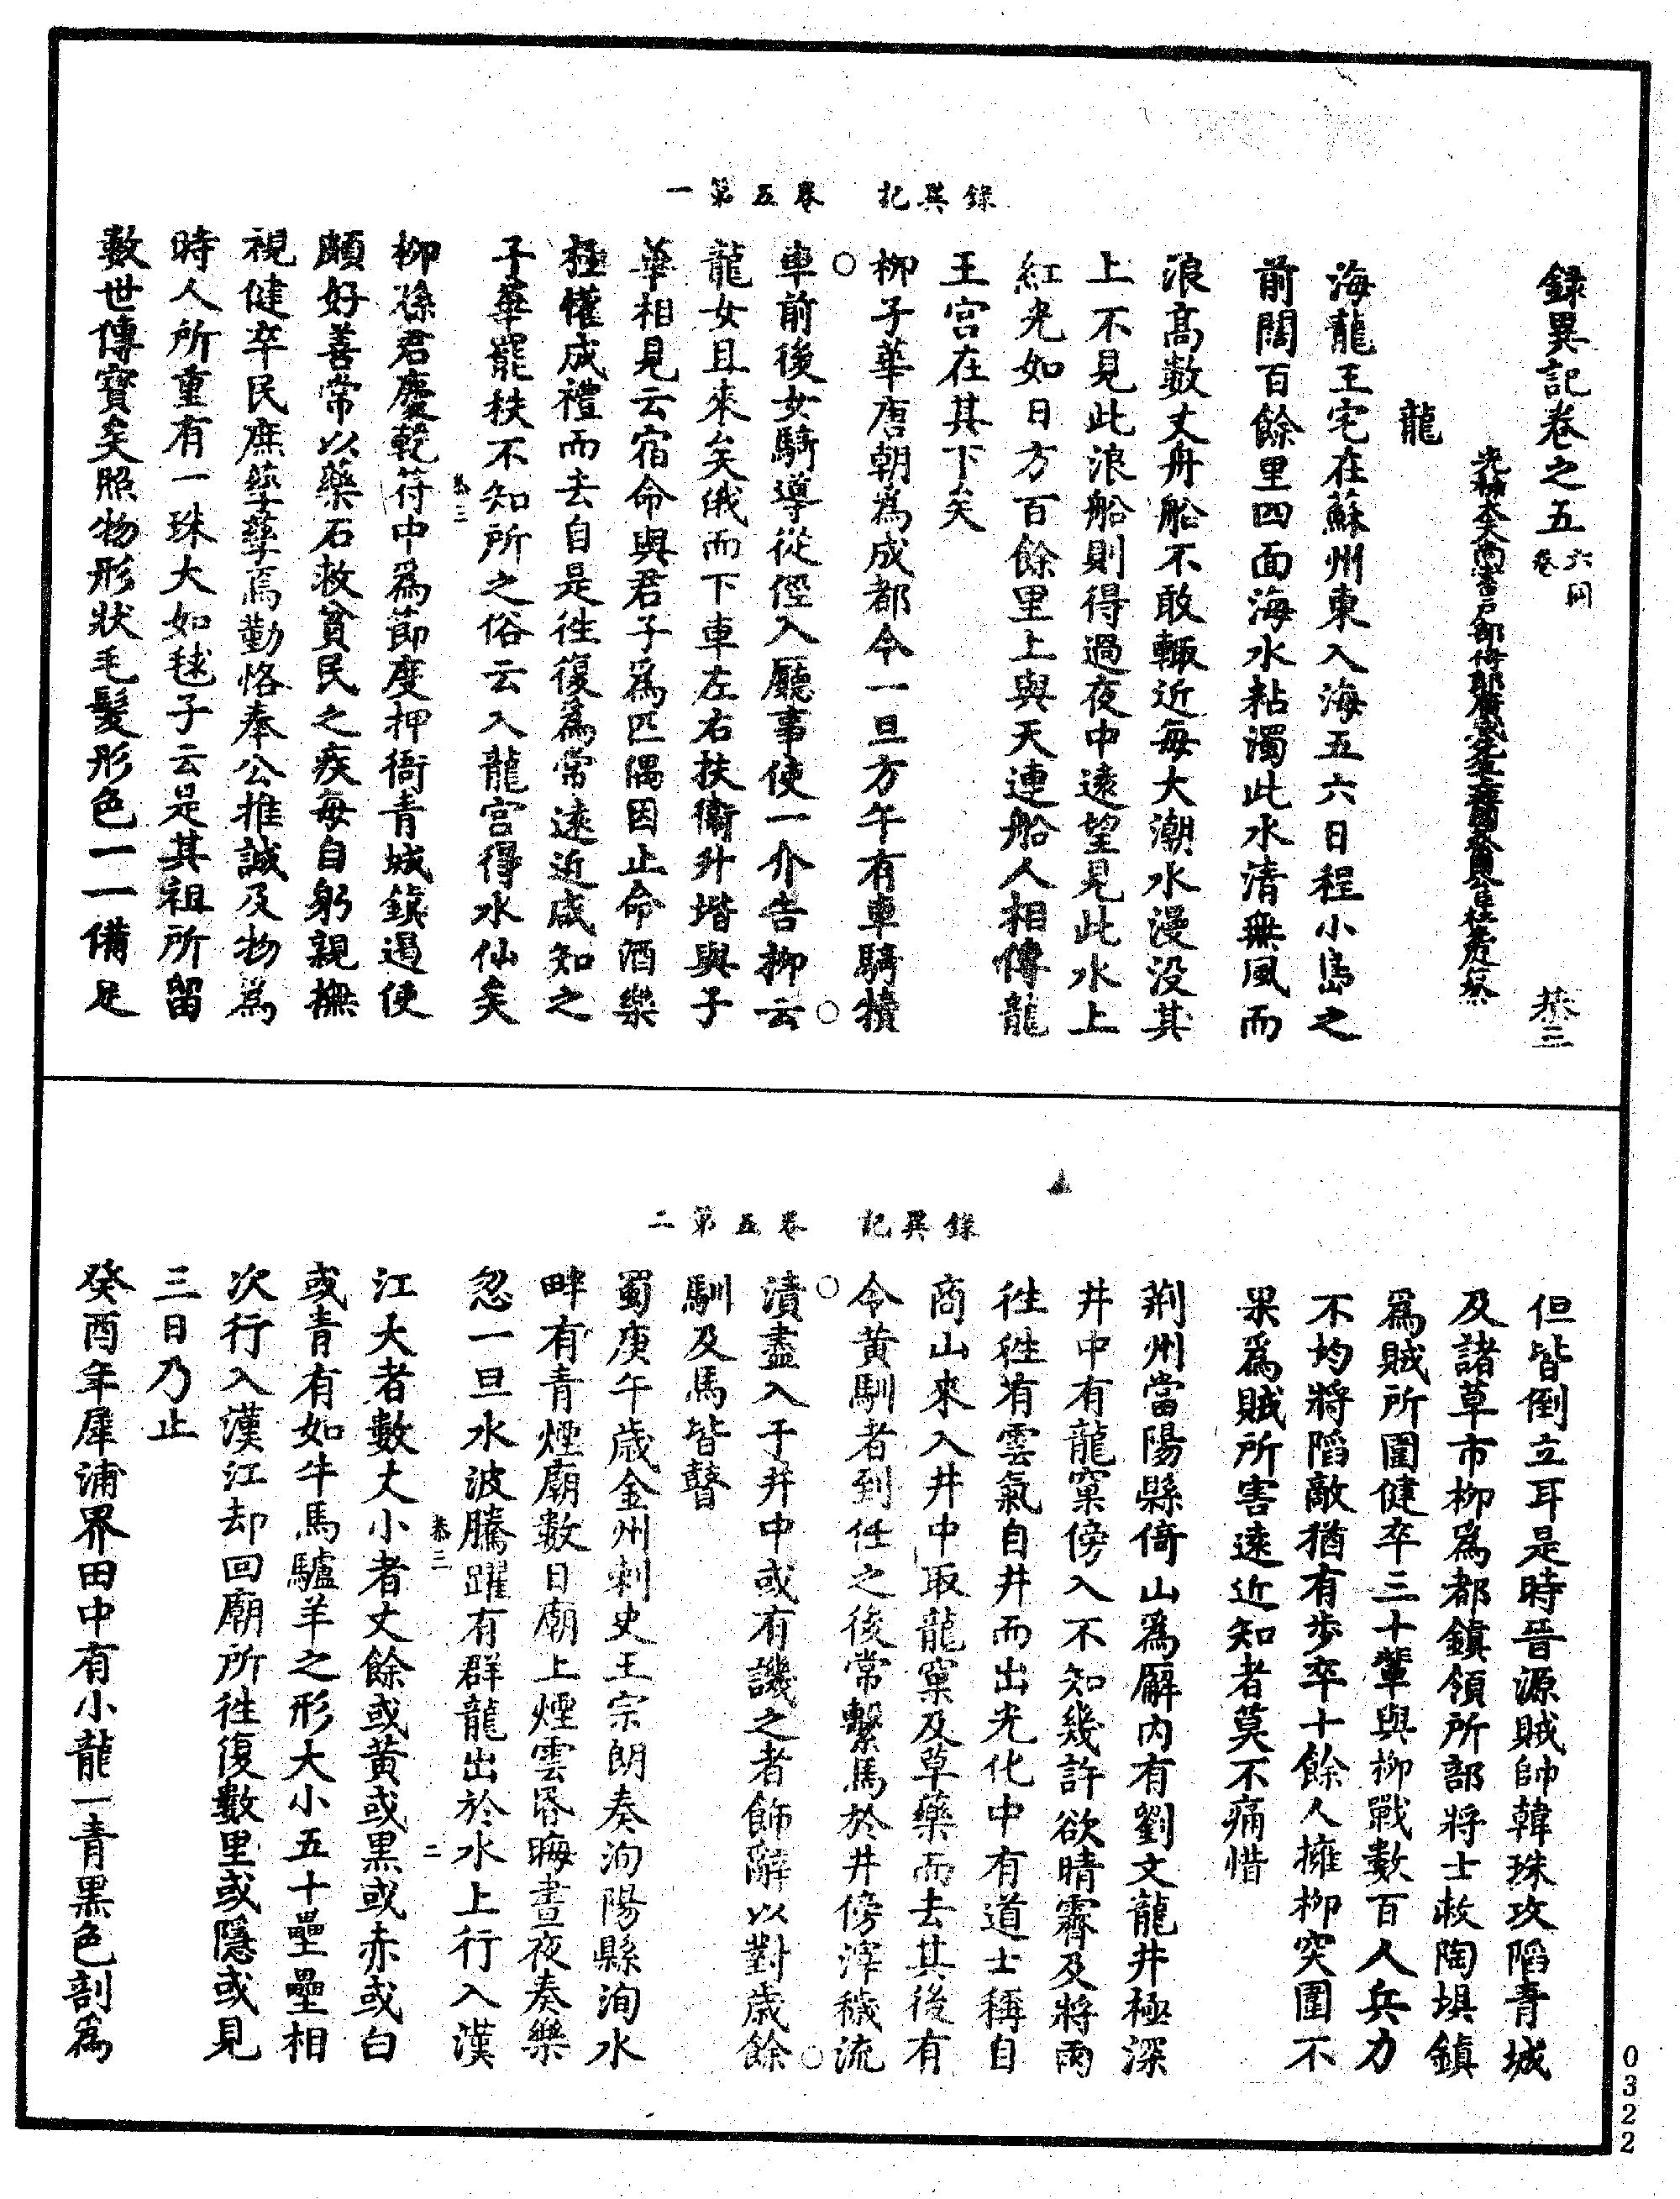 錄異記 卷五第一
錄異記卷之五 六同卷 恭三
光祿大夫尚書戶部侍郎廣成先生上柱國蔡國公臣杜光庭纂
龍
海龍王宅在蘇州東入海五六日程小島之
前闊百餘里四面海水粘濁此水清無風而
浪高數丈舟船不敢輒近每大潮水漫沒其
上不見此浪船則得過夜中遠望見此水上
紅光如日方百餘里上與天連船人相傳龍
王宮在其下矣
柳子華唐朝爲成都令一旦方午有車騎犢
車前後女騎導從徑入廳事使一介告柳云
龍女且來矣俄而下車左右扶衛升堦與子
華相見云宿命與君子爲匹偶因止命酒樂
極懽成禮而去自是往復爲常遠近咸知之
子華罷秩不知所之俗云入龍宮得水仙矣
恭三
柳孫君慶乾符中爲節度押衙青城鎮遏使
頗好善常以藥石救貧民之疾每自躬親撫
視健卒民庶孳孳焉勤恪奉公推誠及物爲
時人所重有一珠大如毬子云是其祖所留
數世傳寶矣照物形狀毛髮形色一一備足
錄異記 卷五第二
但皆倒立耳是時晉源賊帥韓珠攻陷青城
及諸草市柳爲都鎮領所部將士救陶埧鎮
爲賊所圍健卒三十輩與柳戰數百人兵力
不均將陷敵猶有步卒十餘人擁柳突圍不
果爲賊所害遠近知者莫不痛惜
荆州當陽縣倚山爲廨內有劉文龍井極深
井中有龍窠傍入不知幾許欲晴霽及將雨
往往有雲氣自井而出光化中有道士稱自
商山來入井中取龍窠及草藥而去其後有
令黃馴者到任之後常繫馬於井傍滓穢流
漬盡入于井中或有譏之者飾辭以對歲餘
馴及馬皆瞽
蜀庚午歲金州刺史王宗朗奏洵陽縣洵水
畔有青煙廟數日廟上煙雲昏晦晝夜奏樂
忽一旦水波騰躍有群龍出於水上行入漢
恭三 二
江大者數丈小者丈餘或黃或黑或赤或白
或青有如牛馬驢羊之形大小五十壘壘相
次行入漢江却回廟所往復數里或隱或見
三日乃止
癸酉年犀浦界田中有小龍一青黑色剖爲
0322